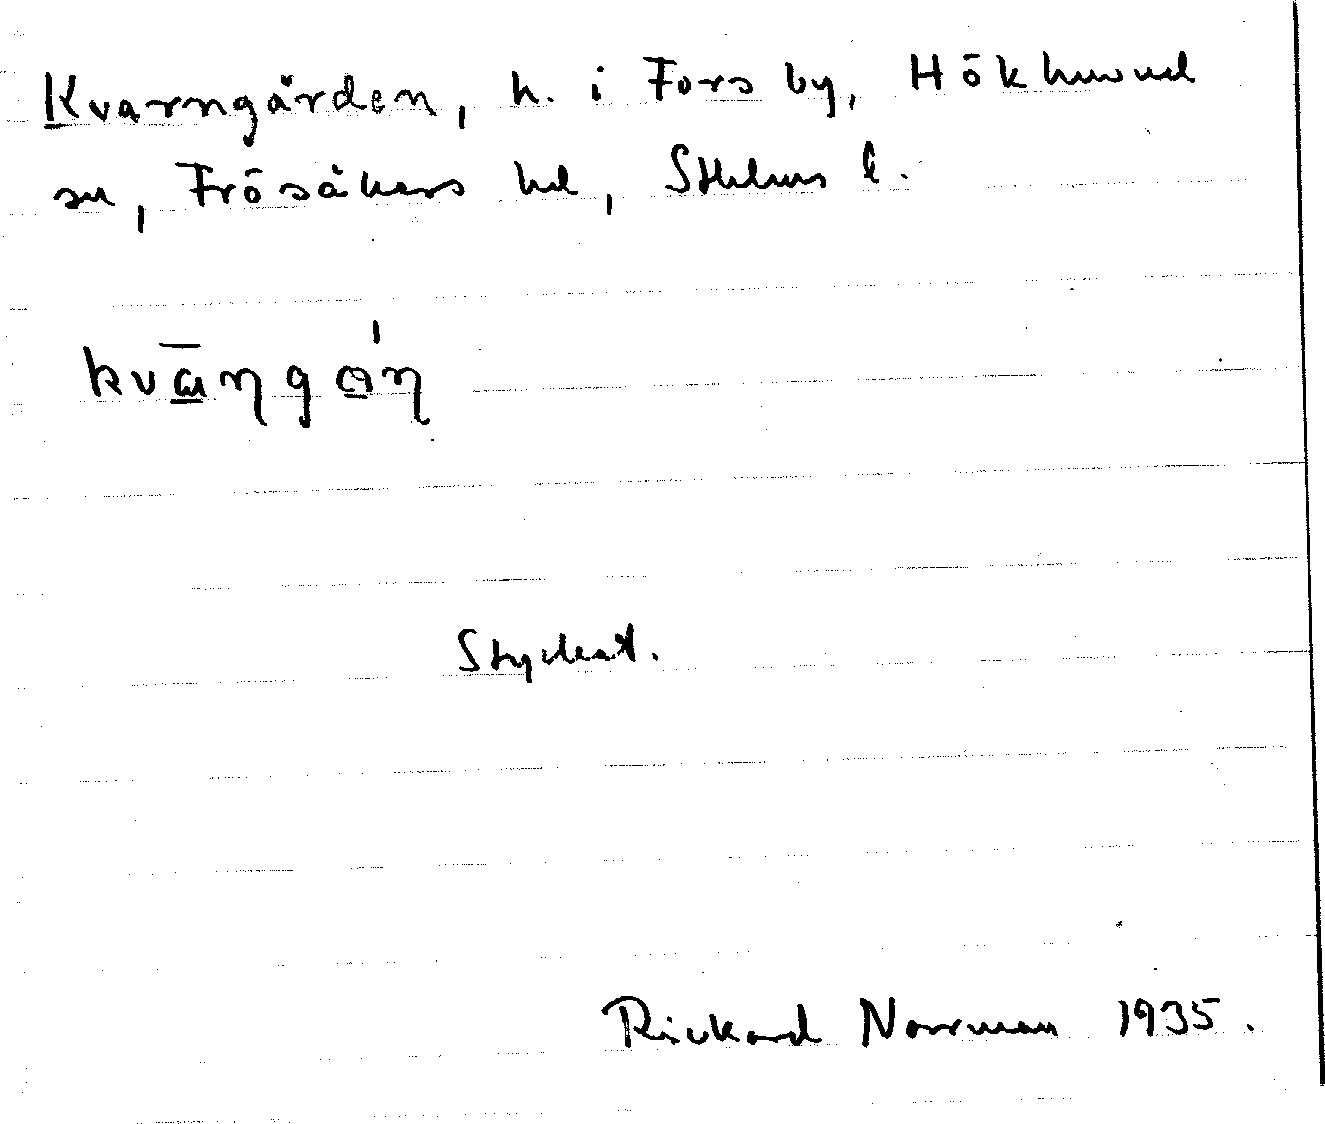 Kvarngården, h. i Forsby, Hökhuvud
sn, Frösåkers hd, Sthlms l.
kva̲̅ŋgo̲̍ŋ
Styckat.
Rickard Norrman 1935.